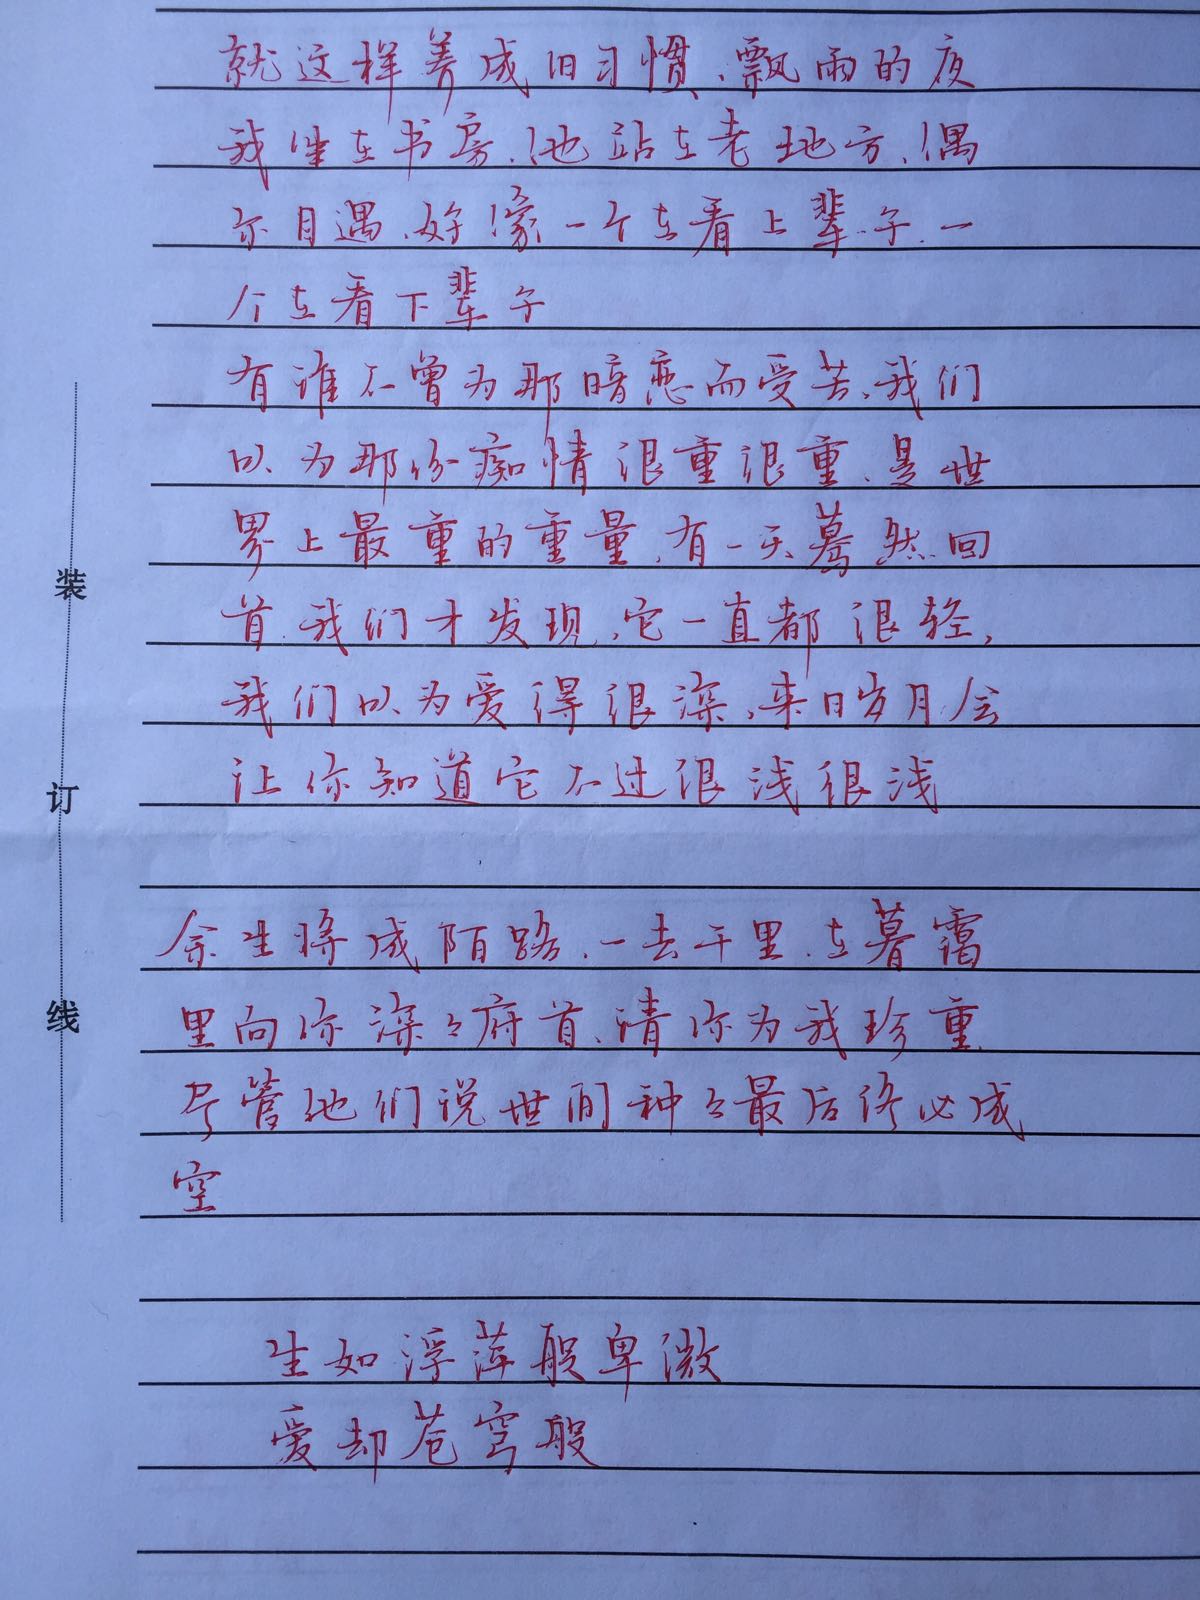 就这样养成旧习惯、飘雨的夜
我坐在书房、他站在老地方、偶
尔目遇、好像一个在看上辈子、一
个在看下辈子
有谁不曾为那暗恋而受苦、我们
以为那份痴情很重很重、是世
界上最重的重量、有一天蓦然回
首、我们才发现、它一直都很轻、
我们以为爱得很深、来日岁月会
让你知道它不过很浅很浅
余生将成陌路、一去千里、在暮霭
里向你深々府首、请你为我珍重
尽管他们说世间种々最后终必成
空
生如浮萍般卑微
爱却苍穹般
装
订
线